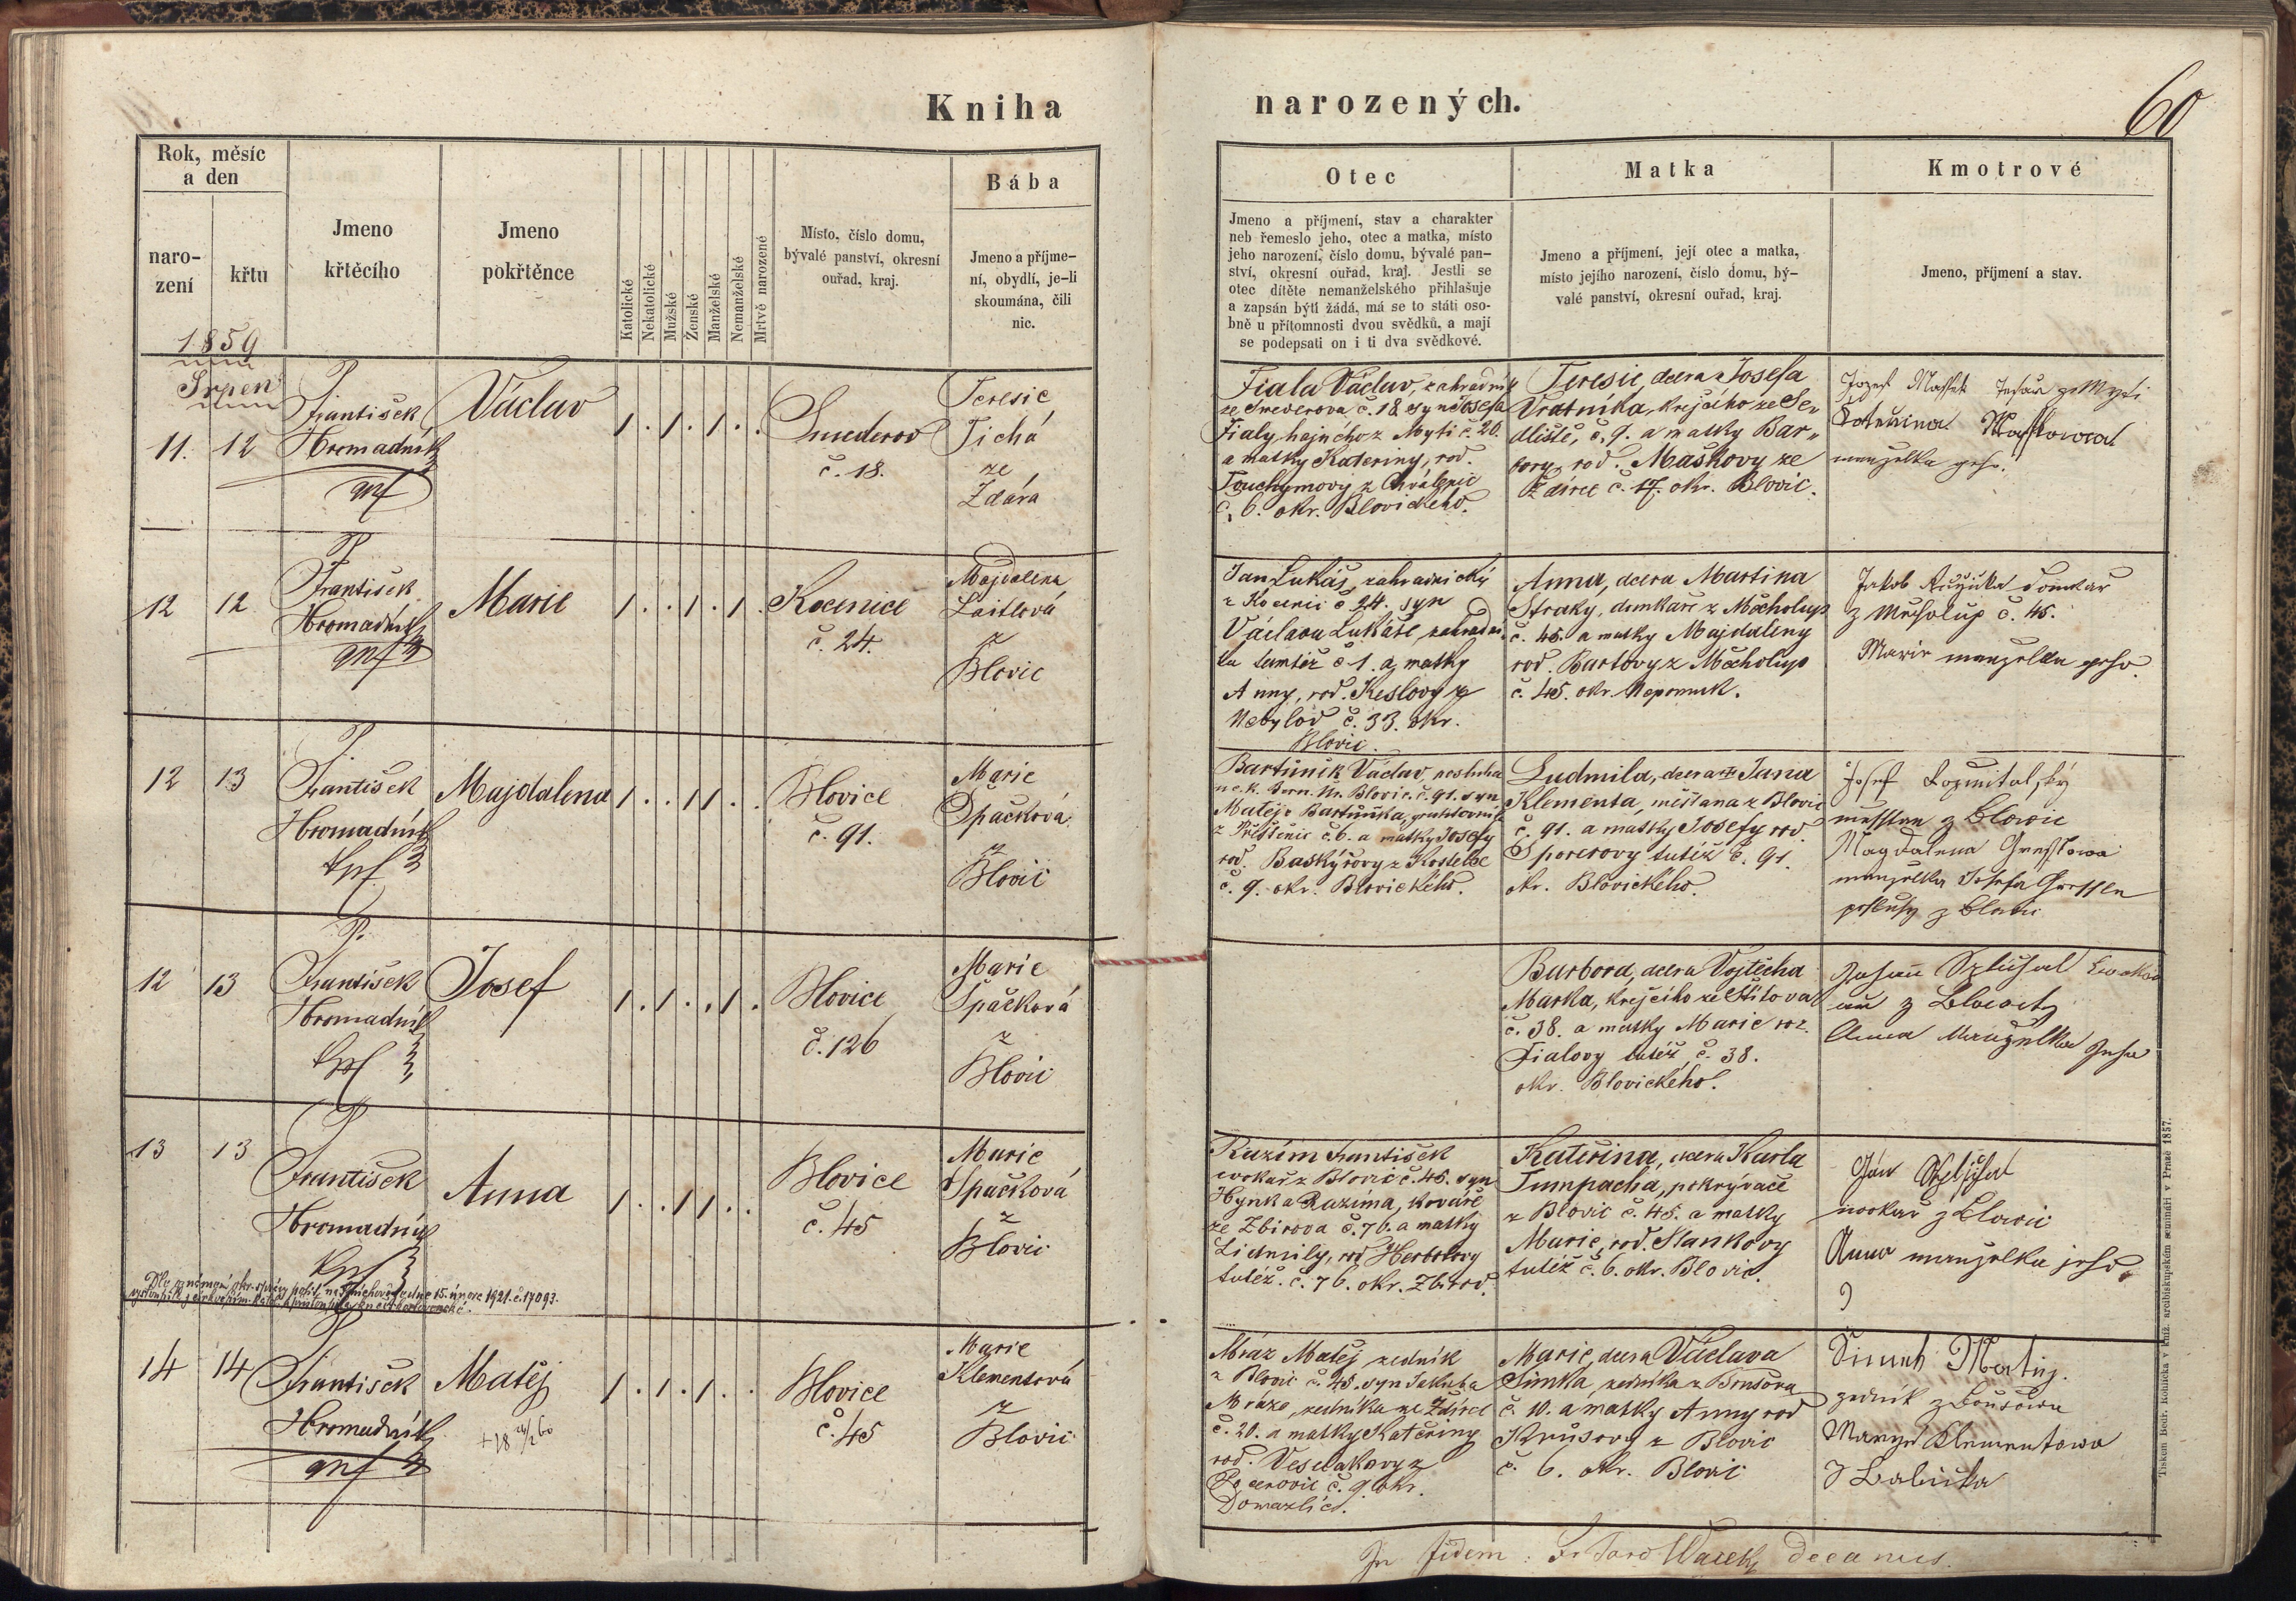 Kniha
narozených.
60
Rok, měsíc
a den
naro-
zení
křtu
Jmeno
křtěcího
Jmeno
pokřtěnce
Katolické
Nekatolické
Mužské
Ženské
Manželské
Nemanželské
Mrtvě narozené
Místo, číslo domu,
bývalé panství, okresní
ouřad, kraj.
Bába
Jmeno a příjme-
ní, obydlí, je-li
skoumána, čili
nic.
Otec
Jmeno a příjmení, stav a charakter
neb řemeslo jeho, otec a matka, místo
jeho narození, číslo domu, bývalé pan-
ství, okresní ouřad, kraj. Jestli se
otec dítěte nemanželského přihlašuje
a zapsán býti žádá, má se to státi oso-
bně u přítomnosti dvou svědků, a mají
se podepsati on i ti dva svědkové.
Matka
Jmeno a příjmení, její otec a matka,
místo jejího narození, číslo domu, bý-
valé panství, okresní ouřad, kraj.
Kmotrové
Jmeno, příjmení a stav.
1859
Srpen
11. 12
P.
František
Hromadník
Václav
Smederov
č. 18.
Teresie
Tichá
ze
Ždára
Fiala Václav, zahradník
ze Smederova, č. 18 syn Josefa
Fialy hajného z Myti č. 20.
a matky Kateriny, rod.
Touchymovy z Chválenic
č. 6. okr. Blovického.
Teresie, dcera Josefa
Vratníka, krejčího ze Se-
dliště, č. 9. a matky Bar-
bory, rod. Maškovy ze
Ždírce č. 17. okr. Blovic.
manzelka geho.
12 12
P.
František
Hromadník
Marie
Kocenice
č. 24.
Magdalena
Laitlová
z
Blovic
Jan Lukáš, zahradnický
z Kocenic č. 24. syn
Václava Lukáše, zahradní-
ka tamtéž č 1. a matky
Anny, rod. Keslovy z
Nebylov č. 33. okr.
Blovic.
Anna, dcera Martina
Straky, domkáře z Měcholup
č. 45. a matky Majdaleny
rod. Bartovy z Měcholup
č. 45. okr. Nepomuk.
Jakob Růžička Domkař
z Mecholup č. 45.
Marie manzelka geho
12 13
P.
František
Hromadník
Majdalena
Blovice
č. 91.
Marie
Špačková
z
Blovic
Bartůněk Václav, posluha
Matěje Bartůňka,
z Přestenic č. 6. a matky Josefy
rod. Baskýřovy z Kostelce
č. 9. okr. Blovického.
Ludmila, dcera Jana
Klementa, měšťana z Blovic
č. 91. a matky Josefy rod
Sporerovy tutéž č. 91.
okr. Blovického.
Josef Rozmitalský
messtan z Blowic
Magdalena
manzelka Josefa
12 13
P.
František
Hromadník
Josef
Blovice
č. 126
Marie
Špačková
z
Blovic
Barbora, dcera Vojtěcha
Marka, krejčího ze Štítova
č. 38. a matky Marie roz.
Fialovy tutéž č. 38.
okr. Blovického.
Anna Manzelka Jeho
13 13
P
František
Hromadník
Anna
Blovice
č. 45
Marie
Špačková
z
Blovic
Razím František
z Blovic č. 45. syn
Hynka Razíma, kováře
ze Zbirova č. 76. a matky
Lidmily, rod Herbstovy
tutéž. č. 76. okr. Zbirov.
Kateřina, dcera Karla
Tumpacha, pokrývače
z Blovic č. 45. a matky
Marie, rod. Slankovy
tutéž č. 6. okr. Blovic.
Jan
z Blowic
Anna manzelka jeho
15. února 1921. č. 17093.
14 14
P
František
Hromadník
Matěj
Blovice
č. 45
Marie
Klementová
z
Blovic
Mráz Matěj zedník
z Blovic č. 45. syn Jakuba
Mráze, zedníka ze Ždírce
č. 20. a matky Kateřiny
rod. Veselakovy z
č. 9 okr.
Domažlic.
Marie, dcera Václava
Šimka, zedníka z Boušova
č. 10. a matky Anny rod
z Blovic
č. 6. okr. Blovic
Simek Matej.
zednik z Boušowa
Marye Klementowa
Babička
In fidem:
decanus.
Tiskem Bedř. Rohlíčka v kníž. arcibiskupském semináři v Praze 1857.